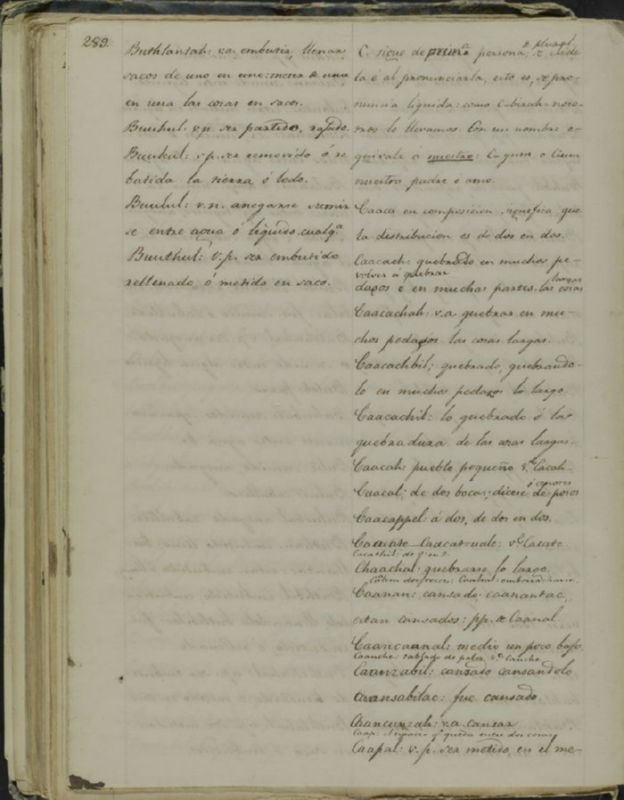 289.
Buthlantah: v.a. embutir, llenar
sacos de uno en uno: meter de una
en una las cosas en saco.
Buuhul: v.n. ser partido, rajado.
Buukul: v.p. ser removido ó re
batida la tierra ó lodo.
Buulul: v.n. anegarse sumir
se entre agua ó liquido cualqª
Buuthul: v.p. ser embutido
rellenado, ó metido en saco.
C. sigue de primª persona, de plural
la é al pronunciarla, esto es, se pro-
nuncia liquida: como C-bizah noso-
tros lo llevamos. Con un nombre e-
quivale a nuestro: C-yum o Ciaum
nuestro padre o amo.
Caaca en composicion significa que
la distribucion es de dos en dos.
Caacach: quebrado en muchos pe-
volver a quebrar
dazos o en muchas partes las cosas largas
Caacachah: v.a. quebrar en mu
chos pedazos las cosas largas.
Caacachbil; quebrado, quebrando-
lo en muchos pedazos lo largo.
Caacachil: lo quebrado ó la
quebradura de las cosas largas.
Caacah: pueblo pequeño v. Cacah.
ó cenotes
Caacal: de dos bocas; dicese de pozos
Caacappel: á dos, de dos en dos.
Chaachal: quebrarse lo largo.
Caanan: cansado: caanantac,
estan cansados: pp. de Caanal.
Caancaanal: medio un poco bajo.
Caanzabil: cansado cansandolo
caansabilac: fue cansado.
Caancunzah: v.a. cansar
Caapal: v.p. ser metido, en el me-